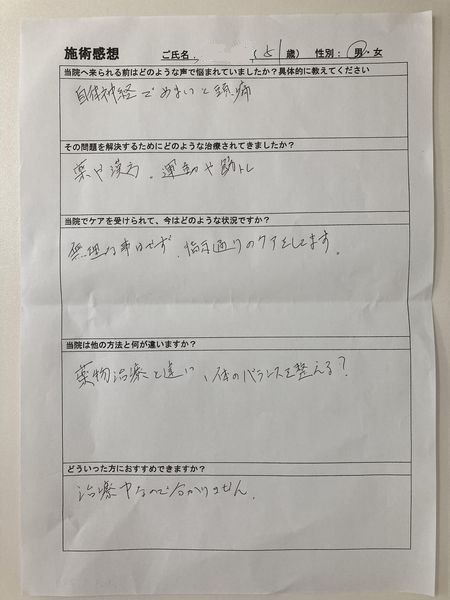 施術感想 ご氏名 (51歳) 性別：男・女
当院へ来られる前はどのような声で悩まれていましたか？具体的に教えてください
自律神経でめまいと頭痛
その問題を解決するためにどのような治療されてきましたか？
薬や漢方、運動や筋トレ
当院でケアを受けられて、今はどのような状況ですか？
無理な事はせず、指示通りのケアをしてます。
当院は他の方法と何が違いますか？
薬物治療と違い、体のバランスを整える？
どういった方におすすめできますか？
治療中なので分かりません。